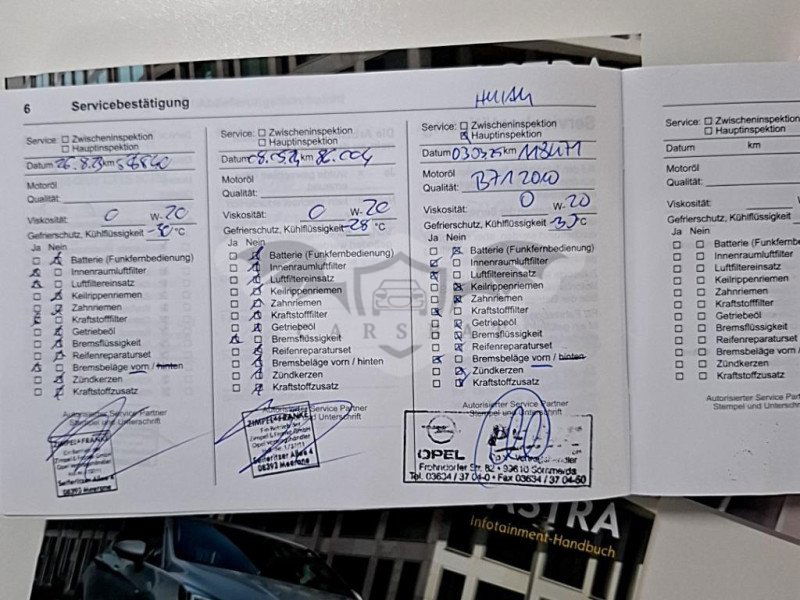 6 Servicebestätigung
Service: Zwischeninspektion
Hauptinspektion
Datum 26.8.23 km
Motoröl
Qualität:
Viskosität: 0 W-20
Gefrierschutz, Kühlflüssigkeit -30 °C
Ja Nein
Batterie (Funkfernbedienung)
Innenraumluftfilter
Luftfiltereinsatz
Keilrippenriemen
Zahnriemen
Kraftstofffilter
Getriebeöl
Bremsflüssigkeit
Reifenreparaturset
Bremsbeläge vorn / hinten
Zündkerzen
Kraftstoffzusatz
Autorisierter Service Partner
Stempel und Unterschrift
ZIMPEL+FRANKE
Ein Betrieb der
Zimpel & Franke GmbH
Opel Vertragshändler
Seiferitzer Allee 4
08393 Meerane
Service: Zwischeninspektion
Hauptinspektion
Datum km 82.004
Motoröl
Qualität:
Viskosität: 0 W-20
Gefrierschutz, Kühlflüssigkeit -28 °C
Ja Nein
Batterie (Funkfernbedienung)
Innenraumluftfilter
Luftfiltereinsatz
Keilrippenriemen
Zahnriemen
Kraftstofffilter
Getriebeöl
Bremsflüssigkeit
Reifenreparaturset
Bremsbeläge vorn / hinten
Zündkerzen
Kraftstoffzusatz
Autorisierter Service Partner
und Unterschrift
ZIMPEL+FRANKE
Ein Betrieb der
Zimpel & Franke GmbH
Opel Vertragshändler
Seiferitzer Allee 4
08393 Meerane
Service: Zwischeninspektion
Hauptinspektion
Datum 030325 km 118471
Motoröl
Qualität: B71 2010
Viskosität: 0 W-20
Gefrierschutz, Kühlflüssigkeit °C
Ja Nein
Batterie (Funkfernbedienung)
Innenraumluftfilter
Luftfiltereinsatz
Keilrippenriemen
Zahnriemen
Kraftstofffilter
Getriebeöl
Bremsflüssigkeit
Reifenreparaturset
Bremsbeläge vorn / hinten
Zündkerzen
Kraftstoffzusatz
Autorisierter Service Partner
Stempel und Unterschrift
OPEL
Frohndorfer Str. 82 • 99610 Sömmerda
Tel. 03634 / 37 04-0 • Fax 03634 / 37 04-60
Service: Zwischeninspektion
Hauptinspektion
Datum km
Motoröl
Qualität:
Viskosität: W-
Gefrierschutz, Kühlflüssigkeit
Ja Nein
Batterie (Funkfernb
Innenraumluftfilter
Luftfiltereinsatz
Keilrippenriemen
Zahnriemen
Kraftstofffilter
Getriebeöl
Bremsflüssigkeit
Reifenreparaturset
Bremsbeläge vorn
Zündkerzen
Kraftstoffzusatz
Autorisierter Servic
Stempel und Untersch
ASTRA
Infotainment-Handbuch